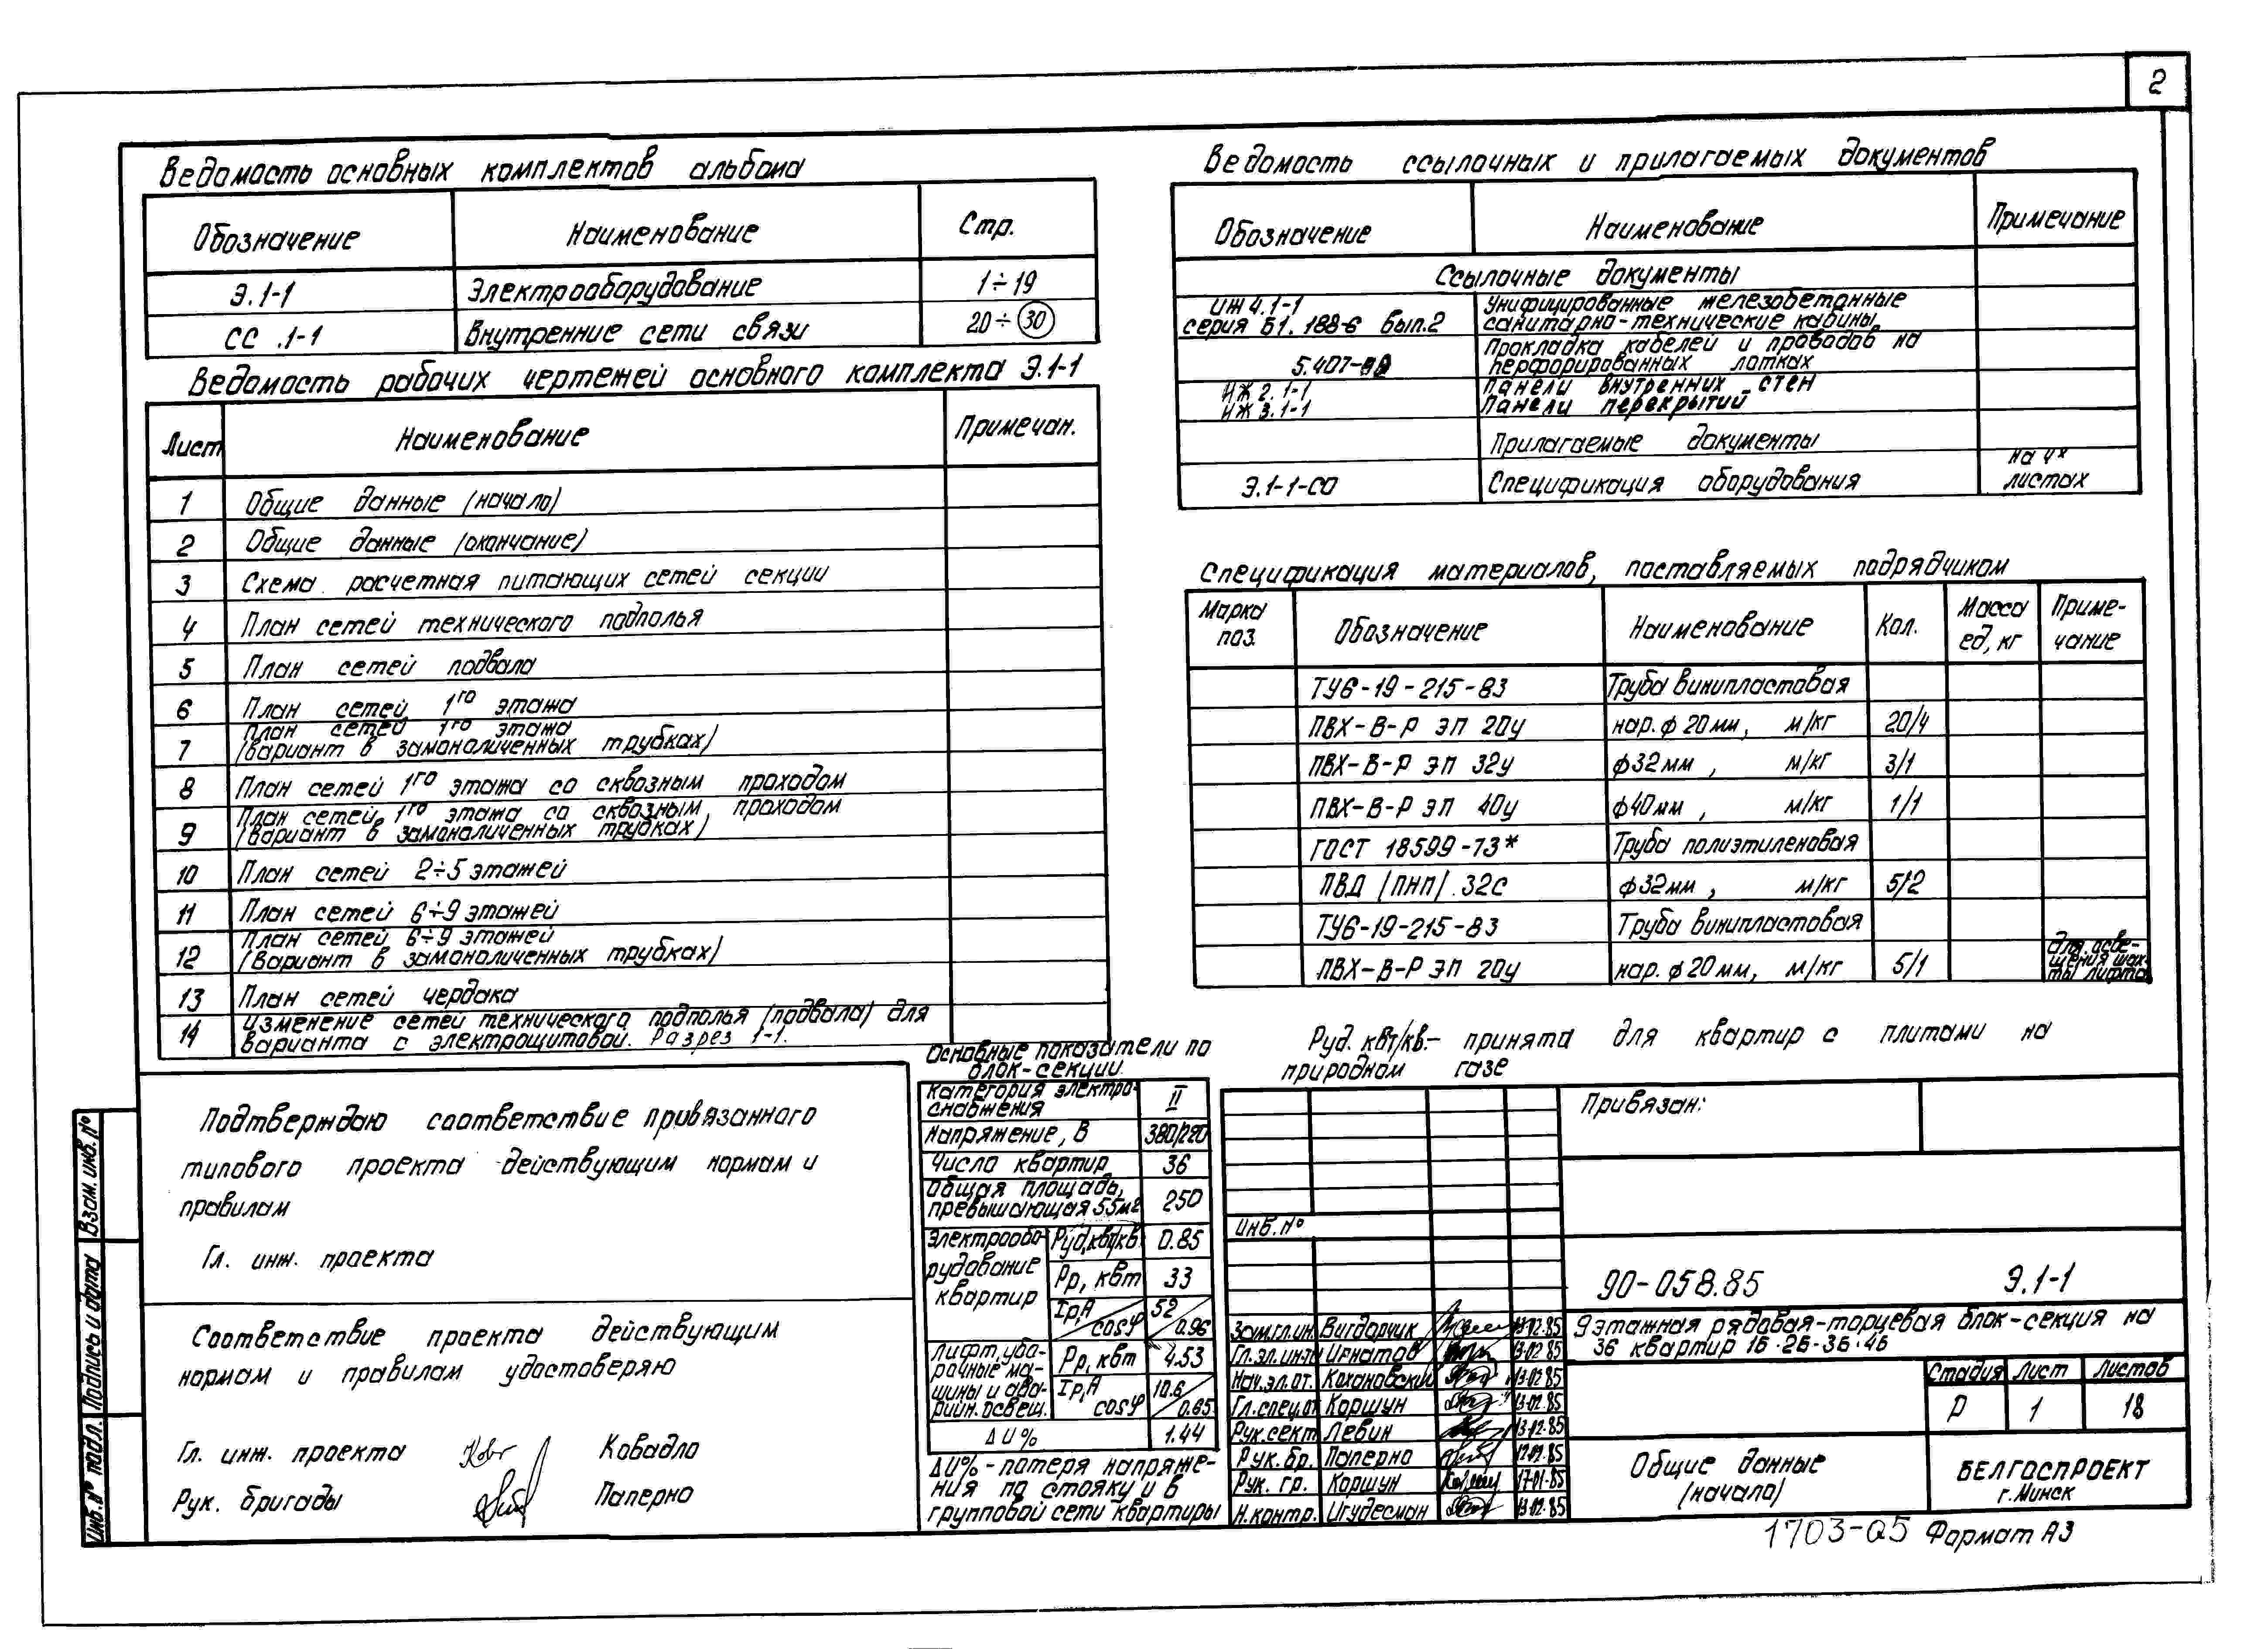 2
Ведомость основных комплектов альбома
Обозначение Наименование Стр.
Э.1-1 Электрооборудование 1÷19
СС .1-1 Внутренние сети связи 20÷30
Ведомость рабочих чертежей основного комплекта Э.1-1
Лист Наименование Примечан.
1 Общие данные (начало)
2 Общие данные (окончание)
3 Схема расчетная питающих сетей секции
4 План сетей технического подполья
5 План сетей подвала
6 План сетей 1го этажа
7 План сетей 1го этажа
(вариант в замоноличенных трубках)
8 План сетей 1го этажа со сквозным проходом
9 План сетей 1го этажа со сквозным проходом
(вариант в замоноличенных трубках)
10 План сетей 2÷5 этажей
11 План сетей 6÷9 этажей
12 План сетей 6÷9 этажей
(вариант в замоноличенных трубках)
13 План сетей чердака
14 Изменение сетей технического подполья (подвала) для
варианта с электрощитовой. Разрез 1-1.
Ведомость ссылочных и прилагаемых документов
Обозначение Наименование Примечание
Ссылочные документы
ИЖ 4.1-1 Унифицированные железобетонные
серия Б1.188-6 вып.2 санитарно-технические кабины
Прокладка кабелей и проводов на
5.407- перфорированных лотках
ИЖ 2.1-1 Панели внутренних стен
ИЖ 3.1-1 Панели перекрытий
Прилагаемые документы
Э.1-1-СО Спецификация оборудования на 4х
листах
Спецификация материалов, поставляемых подрядчиком
Марка поз. Обозначение Наименование Кол. Масса ед, кг Приме-
чание
ТУ6-19-215-83 Труба винипластовая
ПВХ-В-Р ЭП 20у нар. ф 20мм, м/кг 20/4
ПВХ-В-Р ЭП 32у ф32мм, м/кг 3/1
ПВХ-В-Р ЭП 40у ф40мм, м/кг 1/1
ГОСТ 18599-73* Труба полиэтиленовая
ПВД (ПНП). 32с ф32мм, м/кг 5/2
ТУ6-19-215-83 Труба винипластовая
ПВХ-В-Р ЭП 20у нар. ф 20мм, м/кг 5/1 Для осве-
щения шах-
ты лифта
Руд. квт/кв.- принята для квартир с плитами на
природном газе
Подтверждаю соответствие привязанного
типового проекта действующим нормам и
правилам
Гл. инж. проекта
Соответствие проекта действующим
нормам и правилам удостоверяю
Гл. инж. проекта Ковадло
Рук. бригады Паперно
Основные показатели по
блок-секции.
Категория электро-
снабжения II
Напряжение, В 380/220
Число квартир 36
Общая площадь,
превышающая 55м2 250
Электрообо-
рудование
квартир
Руд,квт/кв. 0.85
Рр, квт 33
Iр,А cosφ 52 0.96
Лифт, убо-
рочные ма-
шины и ава-
рийн. освещ.
Рр, квт 4.53
Iр,А cosφ 10.6 0.65
ΔU% 1.44
ΔU% - потеря напряже-
ния по стояку и в
групповой сети квартиры
Привязан:
Инв. №
90-058.85 Э.1-1
Зам.гл.ин. Вигдорчик 13.02.85
Гл.эл.инж. Игнатов 13.02.85
Нач.эл.от. Кохановский 13.02.85
Гл.спец.от Коршун 13.02.85
Рук.сект Левин 13.02.85
Рук.бр. Паперно 12.02.85
Рук. гр. Коршун 17.01.85
Н.контр. Игудесман 13.02.85
9этажная рядовая-торцевая блок-секция на
36 квартир 1Б-2Б-3Б-4Б
Стадия Лист Листов
Р 1 18
Общие данные
(начало)
БЕЛГОСПРОЕКТ
г. Минск
1703-05 Формат А3
Взам. инв. №
Подпись и дата
Инв. № подл.